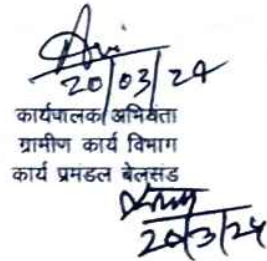 20/03/24
कार्यपालक अभियंता
ग्रामीण कार्य विभाग
कार्य प्रमंडल बेलसंड
20/3/24